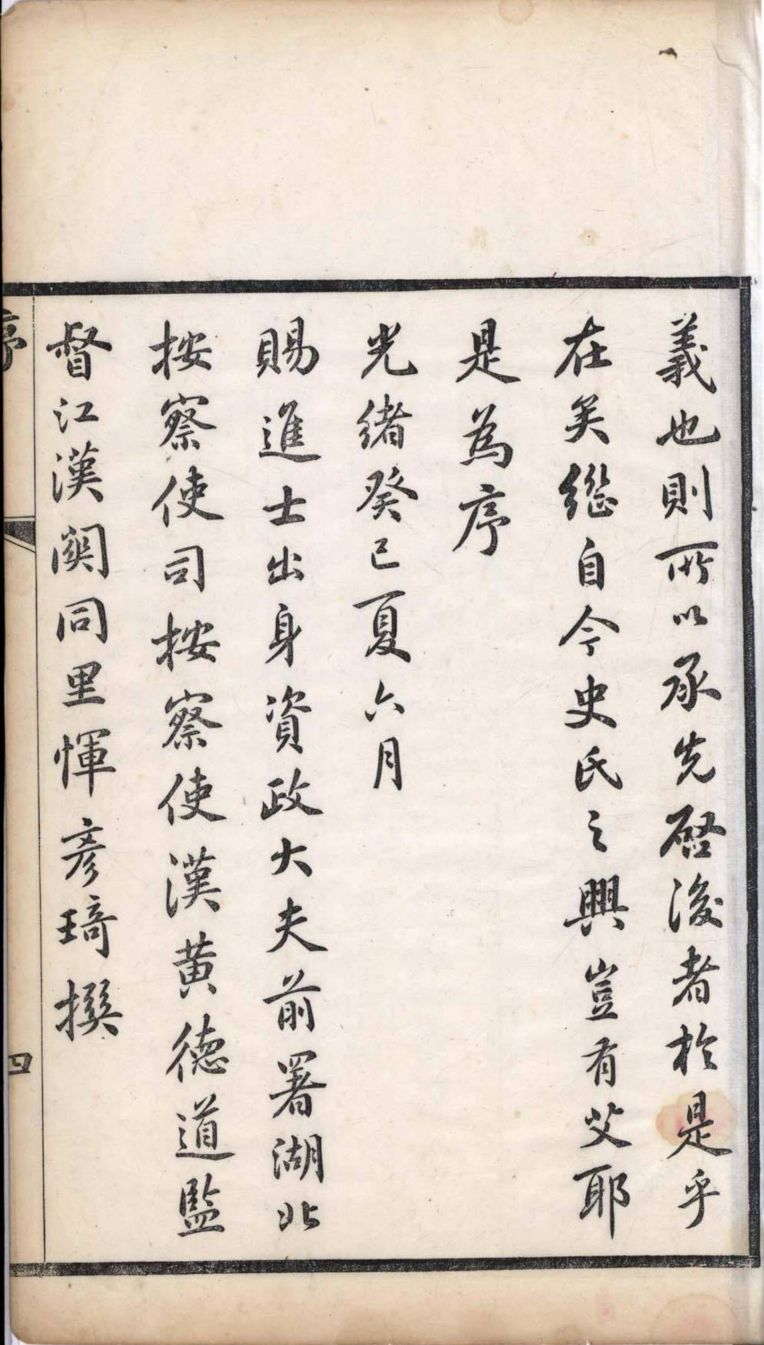 義也則所以承先啓後者於是乎
在矣繼自今史氏之興豈有艾耶
是為序
光緒癸巳夏六月
賜進士出身資政大夫前署湖北
按察使司按察使漢黃德道監
督江漢關同里惲彥琦撰
序
四